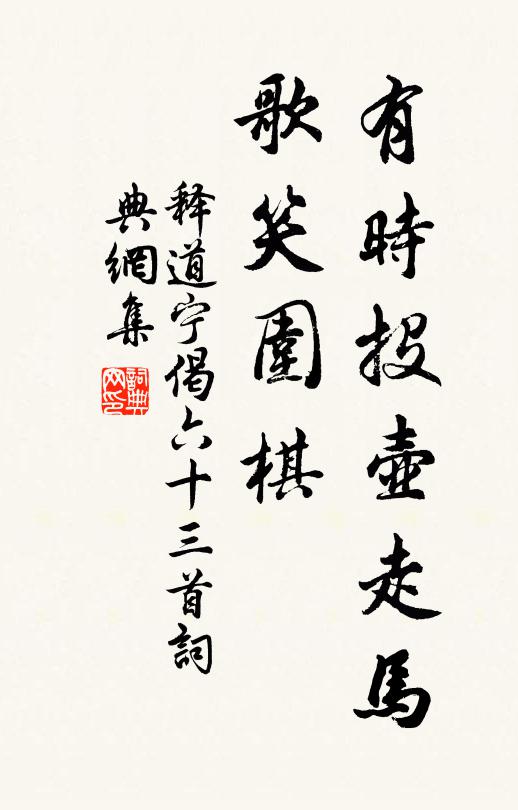 有時投壺走馬
歌笑圍棋
释道宁偈六十三首詞
典網集
詞典
网印